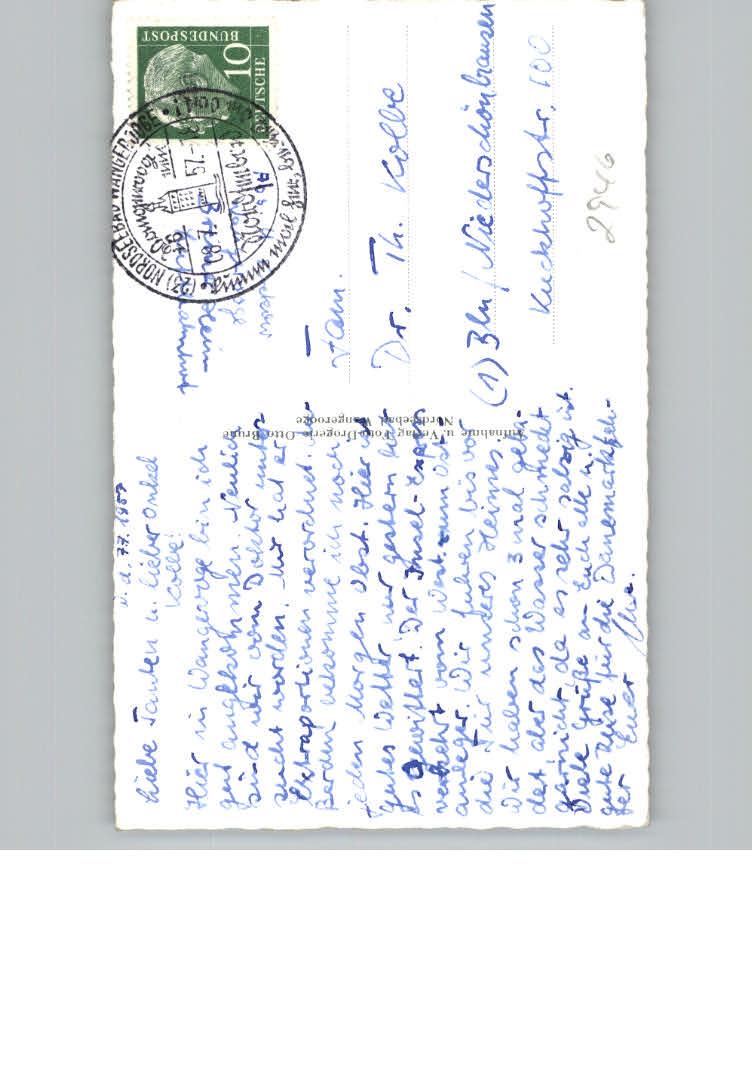 d. 7.7.1957
Liebe Tanten u. lieber Onkel
Kolbe!
Hier in Wangerooge bin ich
gut angekommen. Neulich
sind wir vom Doktor unter-
sucht worden. Mir hat er
Extraportionen verordnet.
bekomme ich noch
jeden Morgen Obst. Hier ist
gutes Wetter nur gestern hat
es gewittert. Der Insel-Express
verkehrt vom West- zum Ost-
anleger. Wir fuhren bis vor
die Tür unseres Heimes.
Wir haben schon 3 mal geba-
det aber das Wasser schmeckt
garnicht da es sehr salzig ist.
Viele Grüße an Euch alle u.
gute Reise für die Dänemarkfah-
rer Euer Uwe.
Aufnahme u. Verlag Foto-Drogerie Otto Brune
Nordseebad Wangerooge
DEUTSCHE
BUNDESPOST
10
(23) NORDSEEBAD WANGEROOGE
Abs.
Fam.
Dr. Th. Kolbe
(1) Bln / Niederschönhausen
Kuckhoffstr. 100
2946